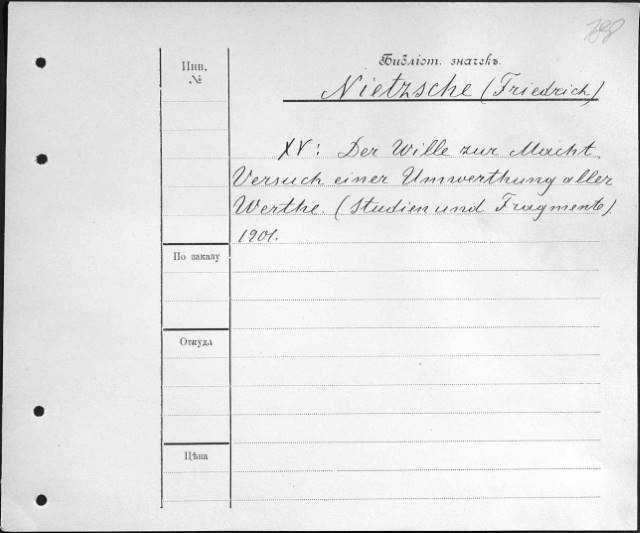 Инв.
№
Библіот. значекъ.
Nietzsche (Friedrich)
XV: Der Wille zur Macht.
Versuch einer Umwerthung aller
Werthe. (Studien und Fragmente).
1901.
По заказу
Откуда
Цѣна